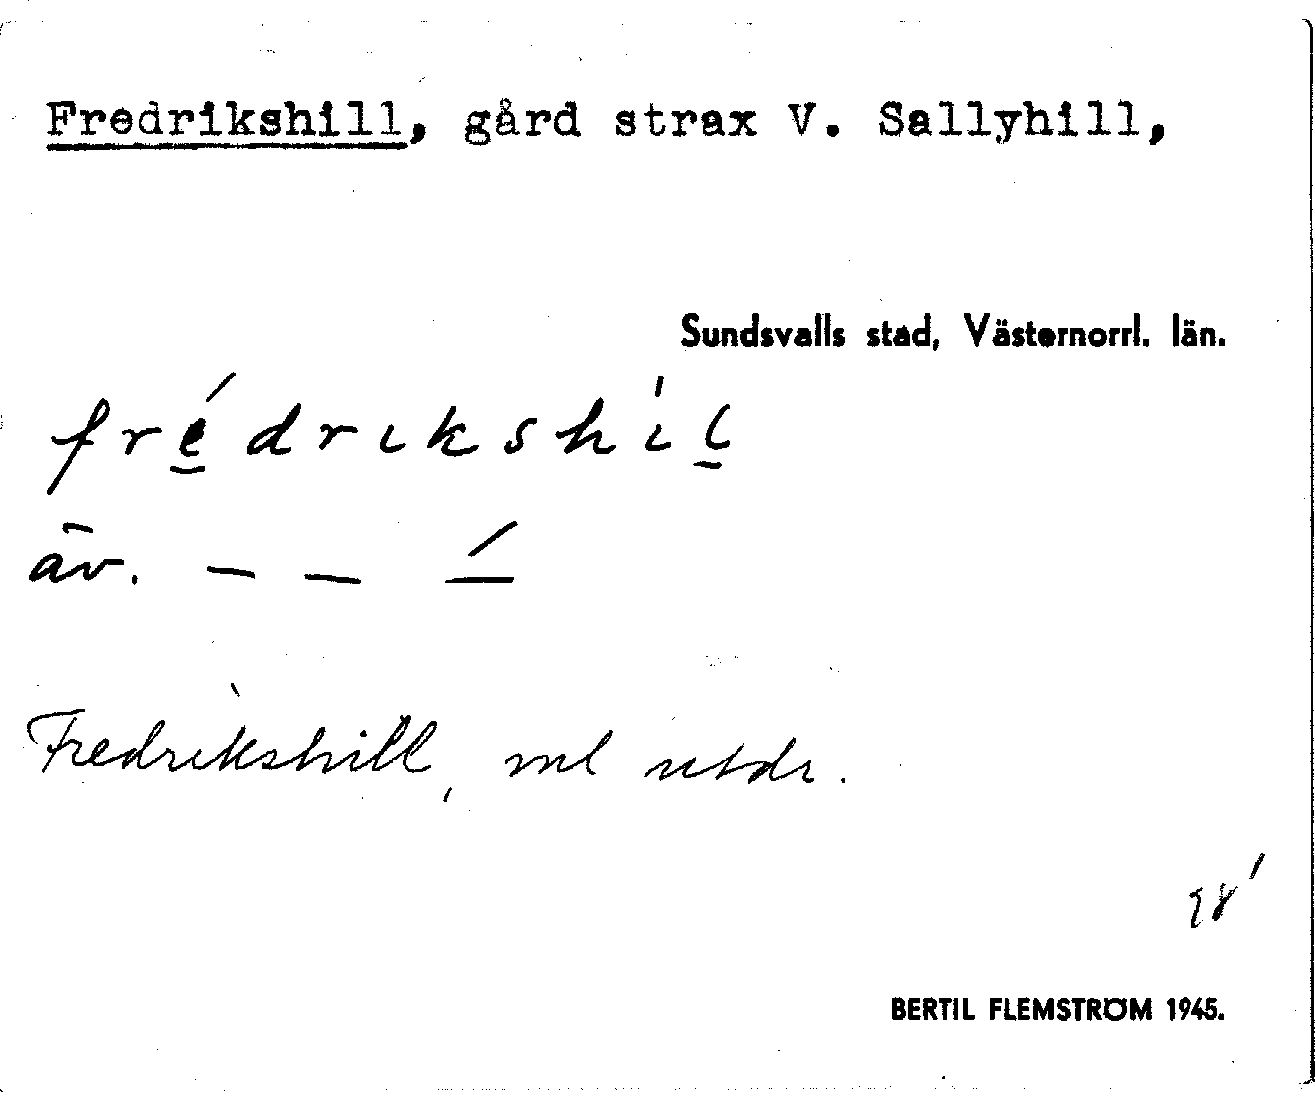 Fredrikshill, gård strax V. Sallyhill,
Sundsvalls stad, Västernorrl. län.
frédrikshil
äv. – – –́
Fredrikshill, ml utdr.
BERTIL FLEMSTRÖM 1945.